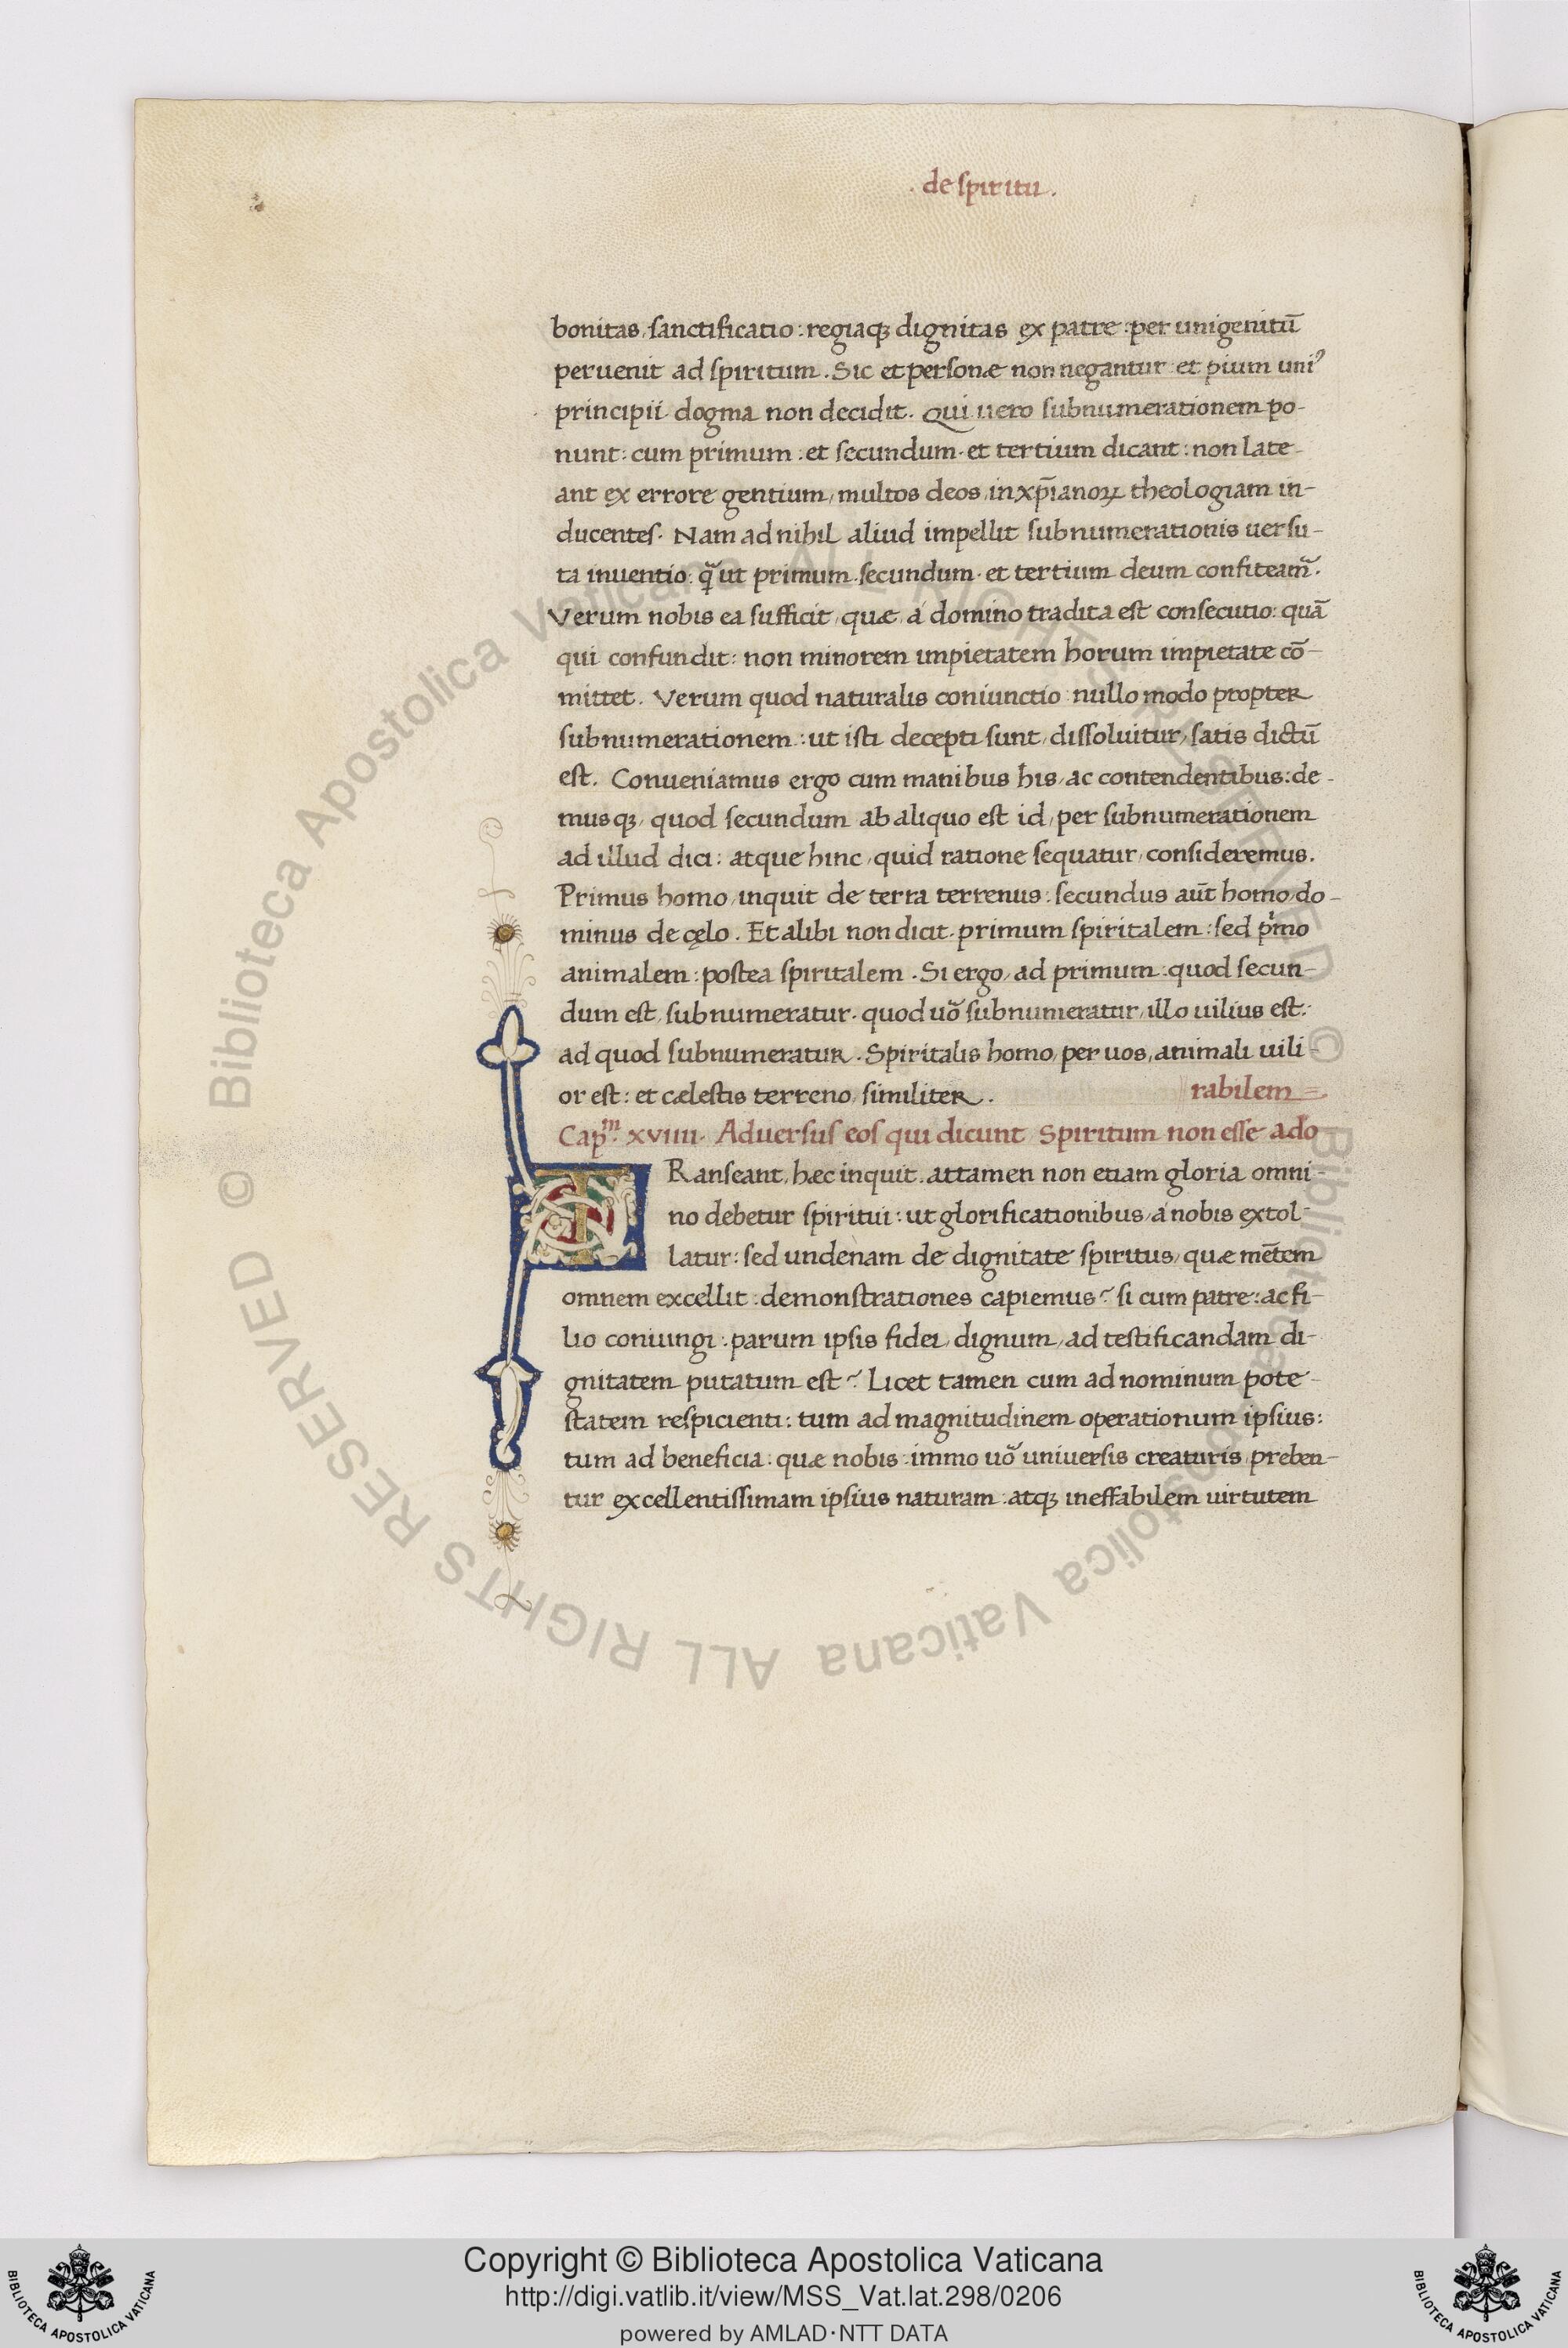 . de spiritu .
bonitas, sanctificatio: regiaqꝫ dignitas ex patre: per unigenitū
peruenit ad spiritum. Sic et personæ non negantur: et pium uniꝰ
principii dogma non decidit. Qui uero subnumerationem po-
nunt: cum primum: et secundum· et tertium dicant: non late-
ant ex errore gentium, multos deos, in xp̄ianoꝝ theologiam in-
ducentes. Nam ad nihil aliud impellit subnumerationis uersu-
ta inuentio: q̄ ut primum. secundum· et tertium deum confiteam̃.
Verum nobis ea sufficit, quæ, á domino tradita est consecutio: quā
qui confundit: non minorem impietatem horum impietate cō-
mittet. Verum quod naturalis coniunctio: nullo modo propter
subnumerationem: ut isti decepti sunt, dissoluitur, satis dictū
est. Conueniamus ergo cum manibus his, ac contendentibus: de-
musqꝫ, quod secundum ab aliquo est id, per subnumerationem
ad illud dici: atque hinc, quid ratione sequatur, consideremus.
Primus homo, inquit de terra terrenus: secundus aūt homo, do-
minus de cęlo. Et alibi non dicit. primum spiritalem: sed pͥmo
animalem: postea spiritalem. Si ergo, ad primum: quod secun-
dum est, subnumeratur. quod uõ subnumeratur, illo uilius est:
ad quod subnumeratur. Spiritalis homo, per uos, animali uili-
or est: et cælestis terreno, similiter.
rabilem =
Capᵐ. xviiii. Aduersus eos qui dicunt Spiritum non esse ado
TRanseant, hæc inquit. attamen non etiam gloria omni-
no debetur spiritui: ut glorificationibus, á nobis extol-
latur: sed undenam de dignitate spiritus, quæ mētem
omnem excellit: demonstrationes capiemus? si cum patre: ac fi-
lio coniungi: parum ipsis fidei, dignum, ad testificandam di-
gnitatem putatum est? Licet tamen cum ad nominum pote-
statem respicienti: tum ad magnitudinem operationum ipsius:
tum ad beneficia: quæ nobis: immo uõ uniuersis creaturis, preben-
tur excellentissimam ipsius naturam: atqꝫ ineffabilem uirtutem
© Biblioteca Apostolica Vaticana ALL RIGHTS RESERVED © Biblioteca Apostolica Vaticana ALL RIGHTS RESERVED
Copyright © Biblioteca Apostolica Vaticana
http://digi.vatlib.it/view/MSS_Vat.lat.298/0206
powered by AMLAD·NTT DATA
BIBLIOTECA APOSTOLICA VATICANA
BIBLIOTECA APOSTOLICA VATICANA